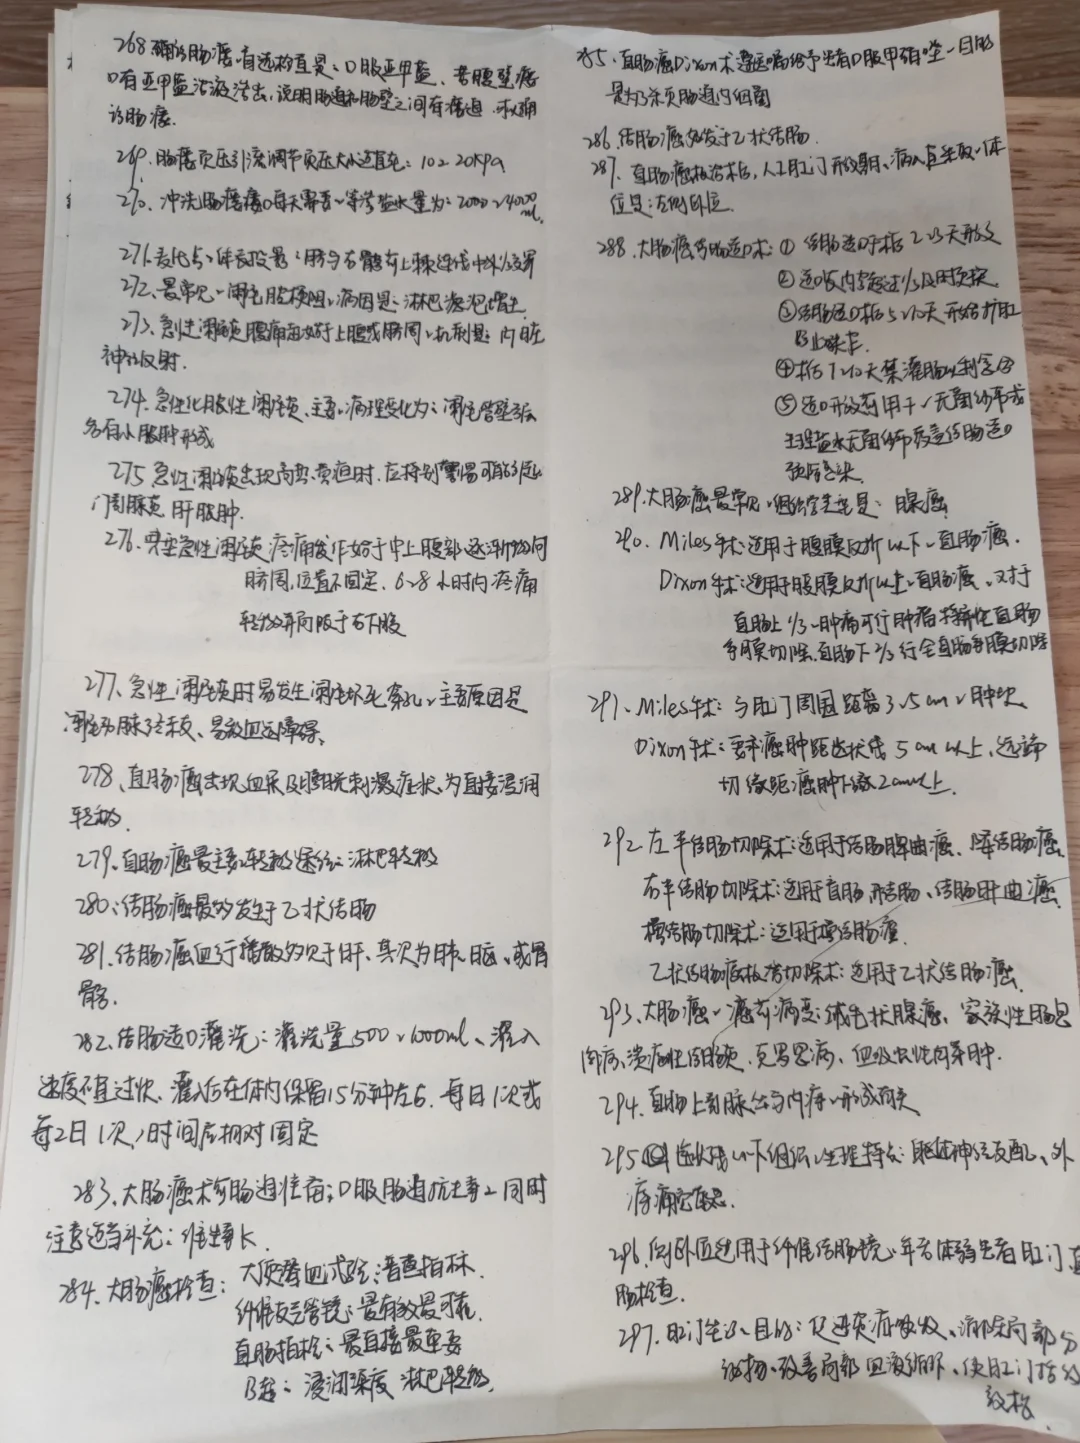 268 确诊肠瘘、首选检查是:口服亚甲蓝、若腹壁瘘
口有亚甲蓝溶液溢出,说明肠道和肠壁之间有瘘道 可以确
诊肠瘘.
269. 肠瘘负压引流调节负压大小适宜在:10~20kpa
270、冲洗肠瘘瘘口每天需要、等渗盐水量为:2000~4000
ml.
271.麦氏点、体表投影:脐与右髂前上棘连线中外1/3交界
272、最常见、阑尾腔梗阻、病因是:淋巴滤泡增生
273、急性阑尾炎腹痛起始于上腹或脐周、机制是:内脏
神经反射.
274、急性化脓性阑尾炎、主要、病理变化为:阑尾管壁各层
各有小脓肿形成
275 急性阑尾炎出现高热、黄疸时、应特别警惕可能的是:
门静脉炎 肝脓肿.
276、典型急性阑尾炎 疼痛发作始于中上腹部、逐渐移向
脐周、位置不固定、6~8小时内疼痛
转移并局限于右下腹
277、急性阑尾炎时易发生阑尾坏死穿孔、主要原因是
阑尾动脉无分支、易致血运障碍.
278、直肠癌出现血尿及膀胱刺激症状、为直接浸润
转移.
279、直肠癌最主要转移途径:淋巴转移
280、结肠癌最多发生于乙状结肠
281、结肠癌血行播散多见于肝、其次为肺、脑、或骨
骼.
282、结肠造口灌洗:灌洗量500~1000ml、灌入
速度不宜过快、灌入后在体内保留15分钟左右、每日1次或
每2日1次、时间应相对固定
283、大肠癌术前肠道准备:口服肠道抗生素、同时
注意适当补充:维生素K
284、大肠癌检查: 大便潜血试验:普查指标.
纤维支气管镜:最有效最可靠
直肠指检:最直接最重要
B超:浸润深度 淋巴转移.
285、直肠癌Dixon术 遵医嘱给予患者口服甲硝唑、目的
是为了杀灭肠道内细菌
286、结肠癌好发于乙状结肠
287、直肠癌根治术后,人工肛门开放期、病人宜采取、体
位是:左侧卧位.
288、大肠癌结肠造口术:① 结肠造口于术后2~3天开放
②造口袋内容超过1/3及时更换
③结肠造口术后5~10天开始扩肛
防止狭窄.
④术后7~10天禁灌肠以利愈合
⑤造口开放前用、无菌纱布或
生理盐水无菌纱布覆盖结肠造口
预防感染.
289、大肠癌最常见、组织学类型是:腺癌
290、Miles手术:适用于腹膜反折以下、直肠癌.
Dixon手术:适用于腹膜反折以上、直肠癌、对于
直肠上1/3、肿瘤可行肿瘤特异性直肠
系膜切除、直肠下2/3行全直肠系膜切除
291、Miles手术:与肛门周围距离3~5cm、肿块
Dixon手术:要求癌肿距齿状线5cm以上、远端
切缘距癌肿下缘2cm以上.
292、左半结肠切除术:适用于结肠脾曲癌、降结肠癌.
右半结肠切除术:适用于盲肠、升结肠、结肠肝曲癌
横结肠切除术:适用于横结肠癌.
乙状结肠癌根治切除术:适用于乙状结肠癌.
293、大肠癌、癌前病变:绒毛状腺瘤、家族性肠息
肉病、溃疡性结肠炎、克罗恩病、血吸虫性肉芽肿.
294、直肠上静脉丛与内痔、形成有关
295 齿状线以下组织、生理特点:躯体神经支配、外
痔痛觉敏感.
296、侧卧位适用于纤维结肠镜、年老体弱患者肛门、直
肠检查.
297、肛门坐浴、目的:促进炎症吸收、清除局部分
泌物、改善局部血液循环、使肛门括约